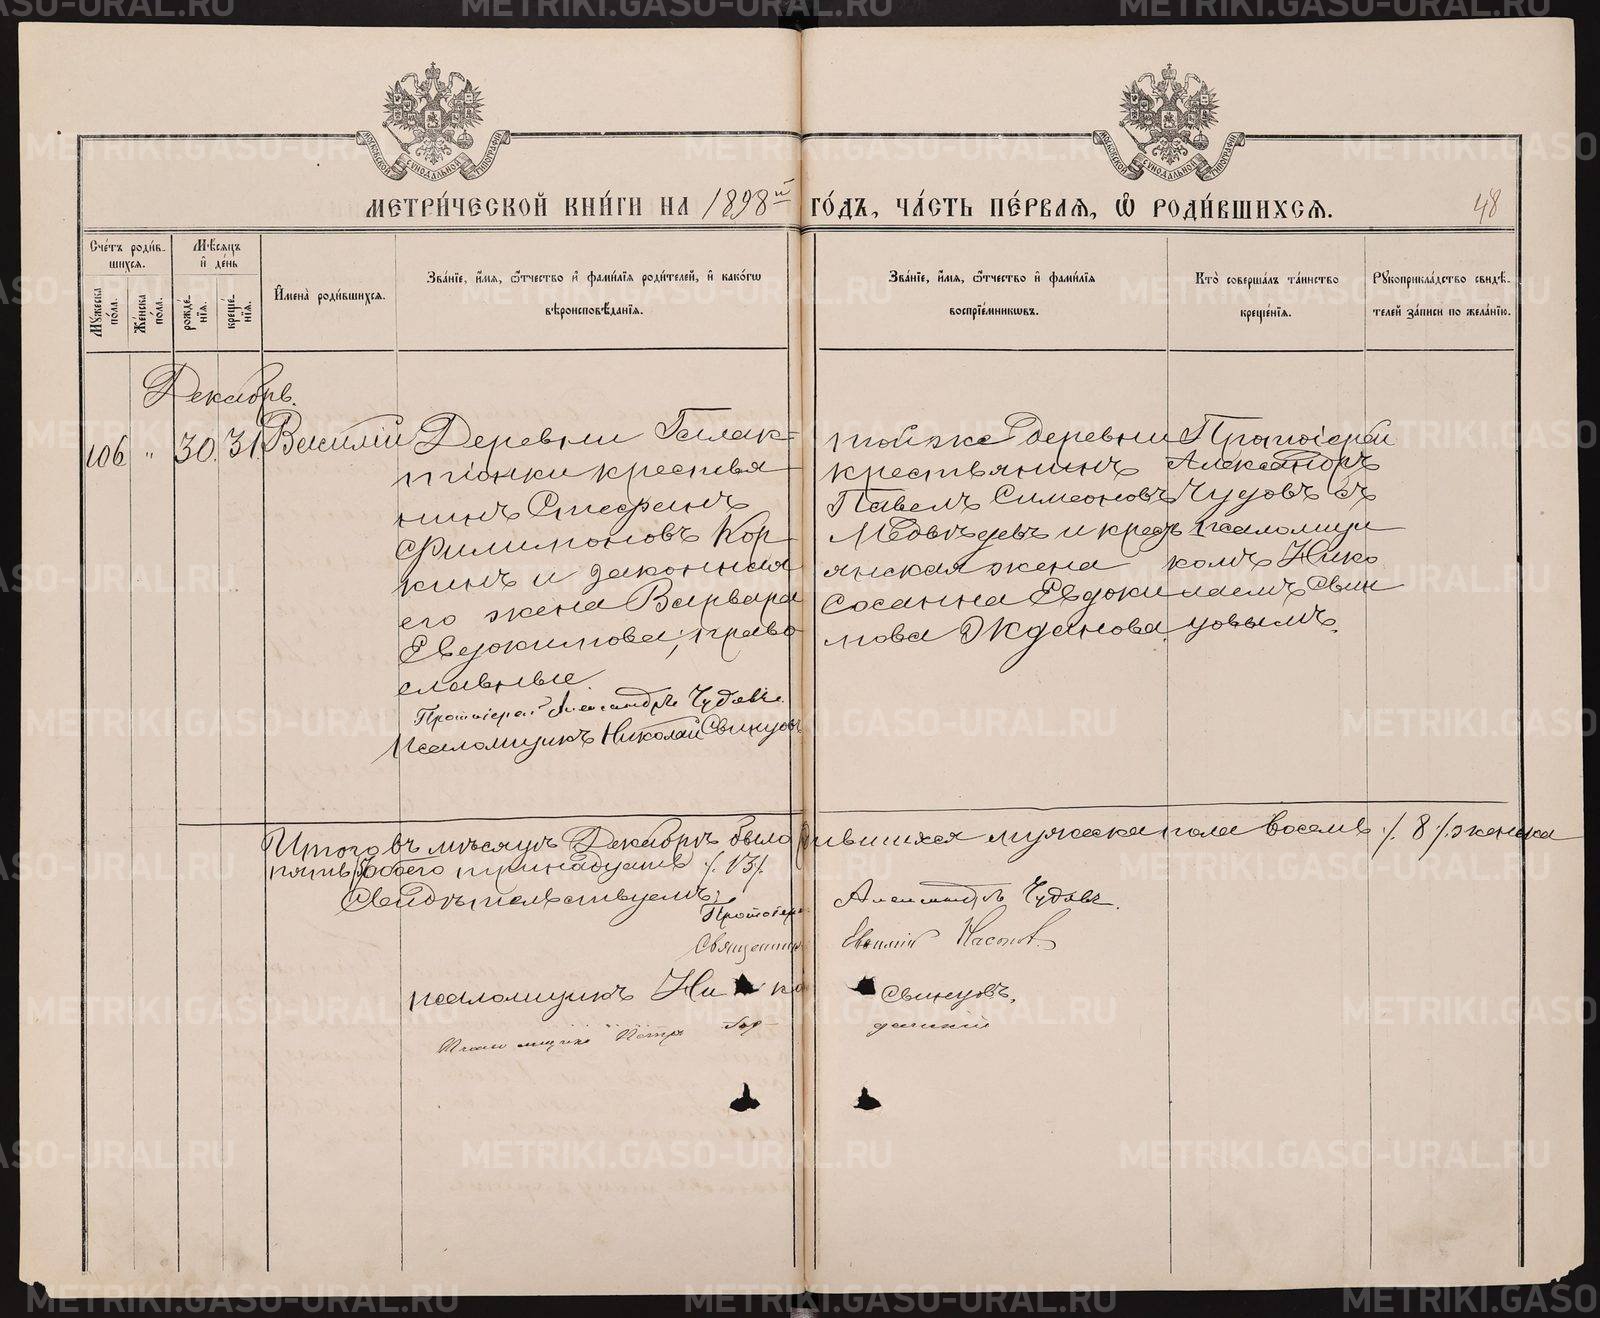 МЕТРИ́ЧЕСКОЙ КНИ́ГИ НА 1898й ГО́ДЪ, ЧА́СТЬ ПЕ́РВАѦ, Ѽ РОДИ́ВШИХСѦ.
48
Сче́тъ роди́в-
шихсѧ.
Мꙋ́жеска
по́ла.
Же́нска
по́ла.
Мѣ́сѧцъ
и҆ де́нь
рожде́-
нїѧ.
креще́-
нїѧ.
И҆мена̀ роди́вшихсѧ.
Зва́нїе, и҆́мѧ, ѻ҆́тчество и҆ фамі́лїѧ роди́телей, и҆ како́гѡ
вѣроисповѣ́данїѧ.
Зва́нїе, и҆́мѧ, ѻ҆́тчество и҆ фамі́лїѧ
воспрїе́мникѡвъ.
Кто̀ соверша́лъ та́инство
креще́нїѧ.
Рꙋкоприкла́дство свидѣ́-
телей за́писи по жела́нїю.
Декабрь.
106 " 30. 31. Василій
Деревни Галак-
тіонки крестья
нинъ Стефанъ
Филимоновъ Кор
кинъ и законная
его жена Варвара
Евдокимова, право
славные.
Протоіерей Александръ Чудовъ.
Псаломщикъ Николай Свинцовъ
той же деревни
крестьянинъ
Павелъ Симеоновъ
Медвѣдевъ и крестъ
янская жена
Сосанна Евдоки
мова Жданова.
Протоіерей
Александръ
Чудовъ съ
псаломщи
комъ Нико
лаемъ Свин
цовымъ.
Итого въ мѣсяцѣ Декабрѣ было родившихся мужеска пола восемь /. 8 /. женска
пять обоего тринадцать /. 13 /.
Свидѣтельствуемъ:
Протоіерей Александръ Чудовъ.
Священникъ Евфимій
псаломщикъ Николай Свинцовъ.
Псаломщикъ Петръ